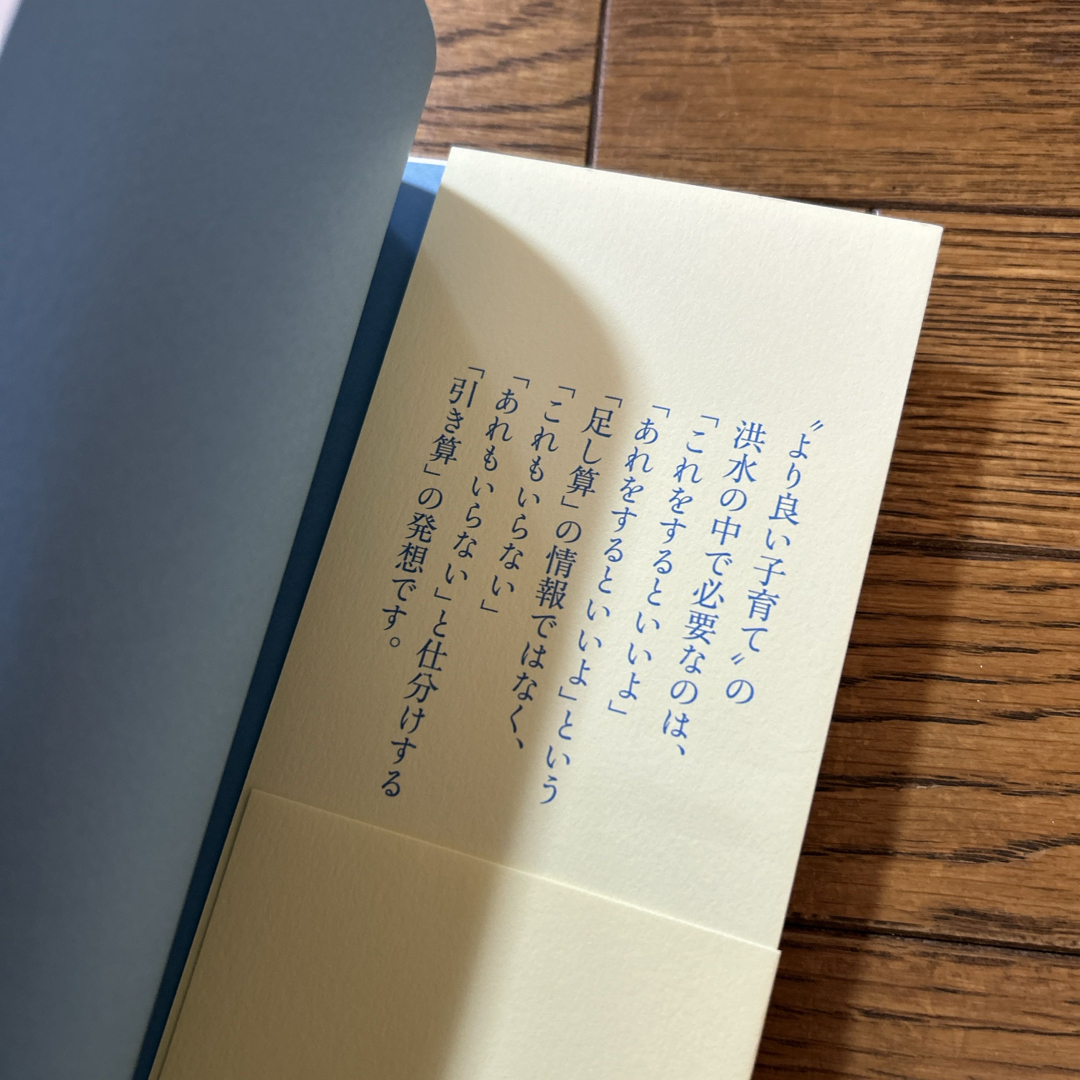 〝より良い子育て〟の
洪水の中で必要なのは、
「これをするといいよ」
「あれをするといいよ」という
「足し算」の情報ではなく、
「これもいらない」
「あれもいらない」と仕分けする
「引き算」の発想です。